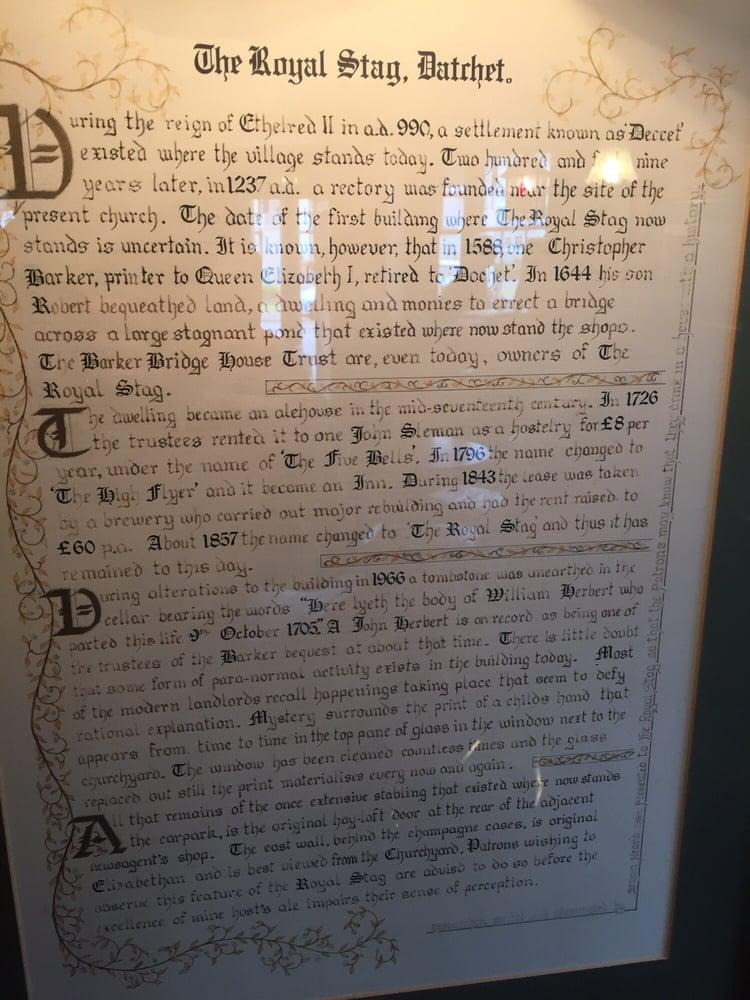 The Royal Stag, Datchet.
During the reign of Ethelred II in a.d. 990, a settlement known as 'Deccet'
existed where the village stands today. Two hundred and nine
years later, in 1237 a.d. a rectory was founded near the site of the
present church. The date of the first building where The Royal Stag now
stands is uncertain. It is known, however, that in 1588, one Christopher
Barker, printer to Queen Elizabeth I, retired to 'Dochet'. In 1644 his son
Robert bequeathed land, a dwelling and monies to errect a bridge
across a large stagnant pond that existed where now stand the shops.
The Barker Bridge House Trust are, even today, owners of The
Royal Stag.
The dwelling became an alehouse in the mid-seventeenth century. In 1726
the trustees rented it to one John Sleman as a hostelry for £8 per
year, under the name of 'The Five Bells'. In 1796 the name changed to
'The High Flyer' and it became an Inn. During 1843 the lease was taken
by a brewery who carried out major rebuilding and had the rent raised to
£60 p.a. About 1857 the name changed to 'The Royal Stag' and thus it has
remained to this day.
During alterations to the building in 1966 a tombstone was unearthed in the
cellar bearing the words "Here lyeth the body of William Herbert who
parted this life 9th October 1705." A John Herbert is on record as being one of
the trustees of the Barker bequest at about that time. There is little doubt
that some form of para-normal activity exists in the building today. Most
of the modern landlords recall happenings taking place that seem to defy
rational explanation. Mystery surrounds the print of a childs hand that
appears from time to time in the top pane of glass in the window next to the
churchyard. The window has been cleaned countless times and the glass
replaced but still the print materialises every now and again.
All that remains of the once extensive stabling that existed where now stands
the carpark, is the original hay-loft door at the rear of the adjacent
newsagent's shop. The east wall, behind the champagne cases, is original
Elizabethan and is best viewed from the Churchyard. Patrons wishing to
observe this feature of the Royal Stag are advisd to do so before the
excellence of mine host's ale impairs their sense of perception.
presented to the Royal Stag so that the Patrons may know that they drink in a house with a history.